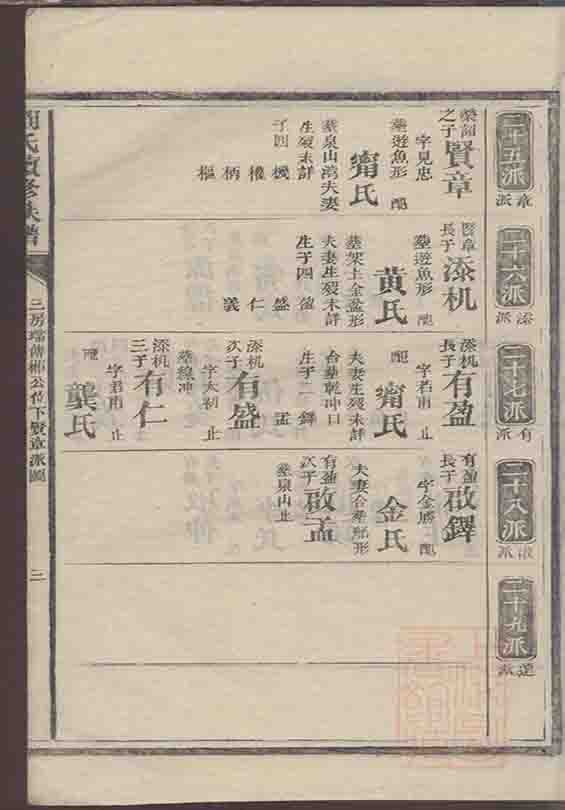 二十五派
章派
榮韶之子賢章
字見忠
墓遊魚形 配
甯氏
墓泉山灣夫妻
生歿未詳
子四 機
權
柄
樞
二十六派
添派
賢章長子添机
墓遊魚形 配
黄氏
墓架上金盆形
夫妻生歿未詳
生子四 盈
盛
仁
義
二十七派
有派
添机長子有盈
字若甫 止
配 甯氏
夫妻生歿未詳
合塟乾冲口
生子二 鐸
孟
添机次子有盛
字太初 止
墓線冲
添机三子有仁
字君甫 止
配 龔氏
二十八派
啟派
有盈長子啟鐸
字金勝 配
金氏
夫妻合塟船形
有盈次子啟孟
墓泉山止
二十九派
運派
氏續修族譜
三房
公位下賢章派圖
三